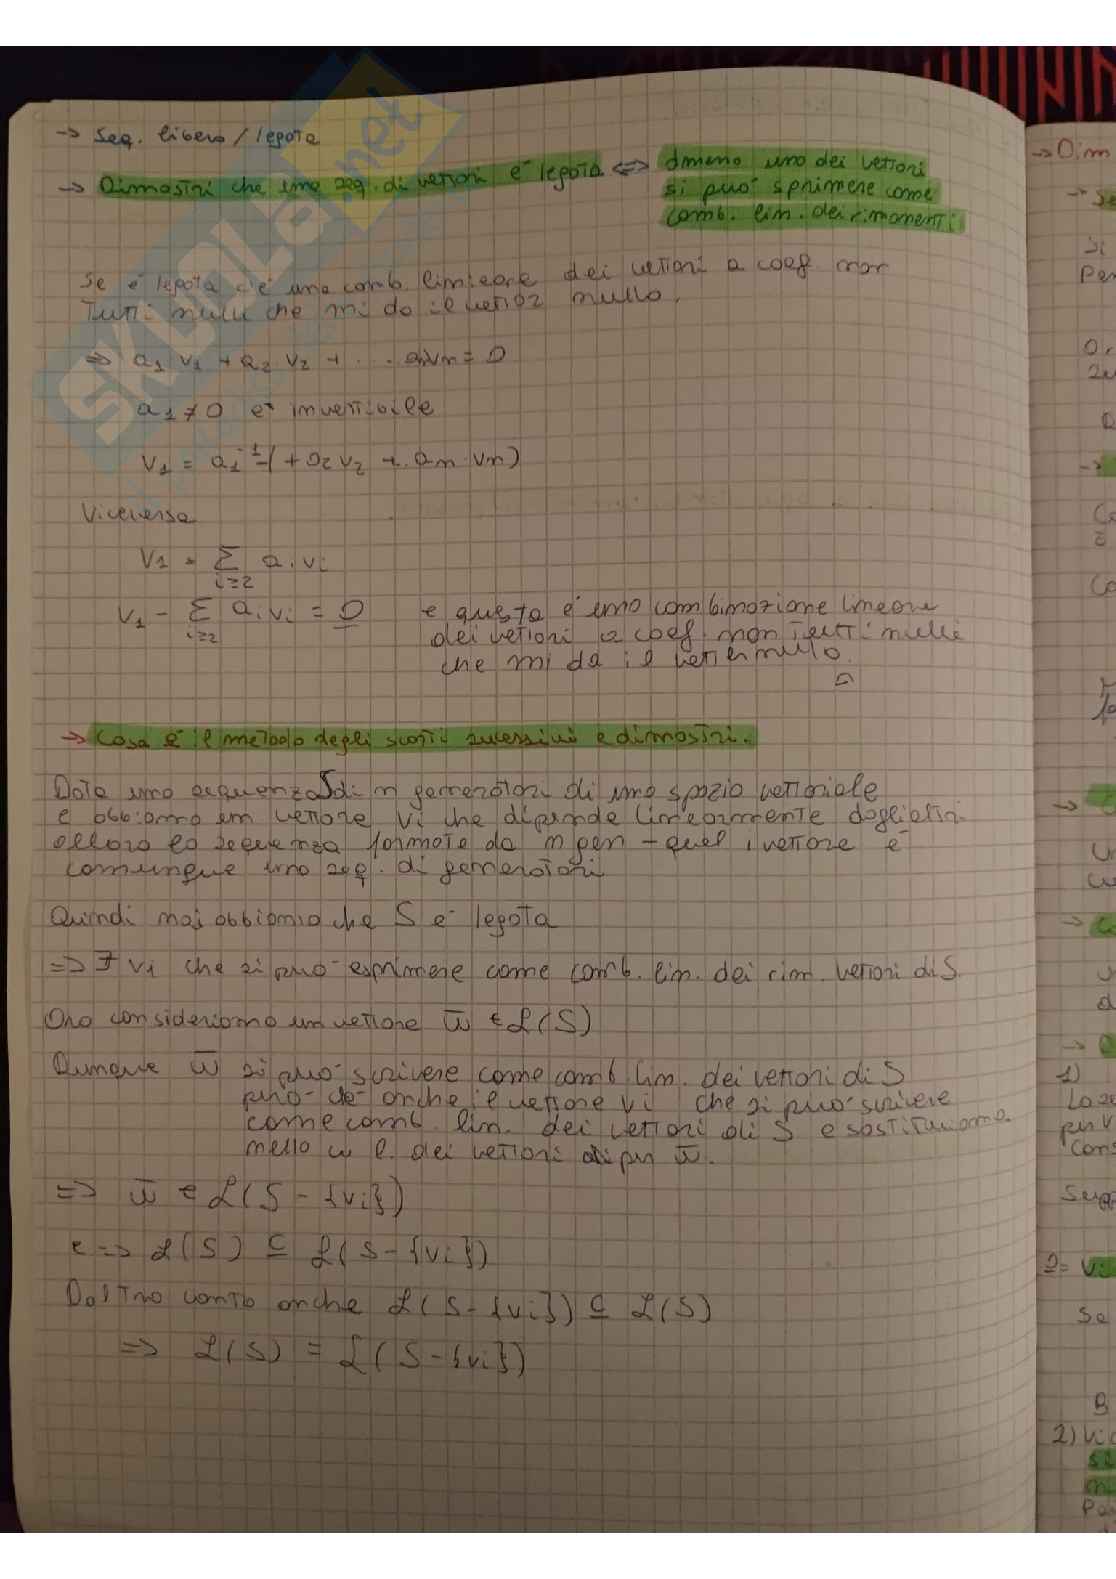 → Seq. libera / legata
→ Dimostri che una seq. di vettori è legata ⟺ almeno uno dei vettori
si può sprimere come
comb. lin. dei rimanenti
Se è legata c'è una comb. lineare dei vettori a coef non
Tutti nulli che mi da il vettor nullo.
⇒ a1 v1 + a2 v2 + ... anvn = 0
a1 ≠ 0 e' invertibile
v1 = a1^-1 -( + a2 v2 + . an vn)
Viceversa
v1 = Σ i≥2 ai vi
v1 - Σ i≥2 ai vi = 0 e questa è una combinazione lineare
dei vettori a coef. non Tutti nulli
che mi da il vettor nullo.
→ Cosa è il metodo degli scarti successivi e dimostri.
Data una sequenza S di n generatori di uno spazio vettoriale
e abbiamo un vettore vi che dipende linearmente dagli altri
allora la sequenza formata da n gen - quel vettore è
comunque una seq. di generatori
Quindi noi abbiamo che S e' legata
⇒ ∃ vi che si può esprimere come comb. lin. dei rim. vettori di S
Ora consideriamo un vettore w̄ ∈ L(S)
Dunque w̄ si può scrivere come comb lin. dei vettori di S
però c'è anche il vettore vi che si può scrivere
come comb. lin. dei vettori di S e sostituiamo
nella c. l. dei vettori di per w̄.
⇒ w̄ ∈ L(S - {vi})
e ⇒ L(S) ⊆ L(S - {vi})
Dal Tro canto anche L(S - {vi}) ⊆ L(S)
⇒ L(S) = L(S - {vi})
SKUOLA.net
→ Dim